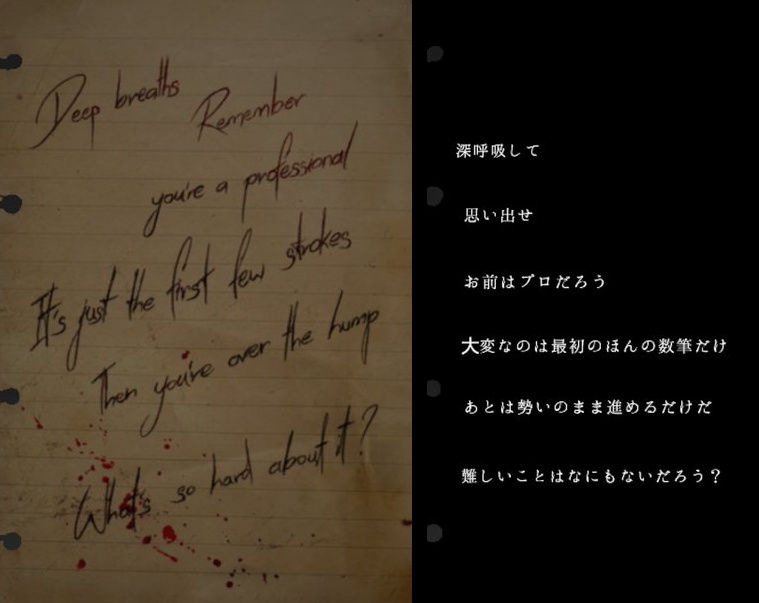 Deep breaths
Remember
you're a professional
It's just the first few strokes
Then you're over the hump
What's so hard about it?
深呼吸して
思い出せ
お前はプロだろう
大変なのは最初のほんの数筆だけ
あとは勢いのまま進めるだけだ
難しいことはなにもないだろう？